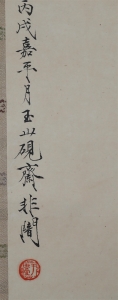 丙戌嘉平月玉山硯齋非闇